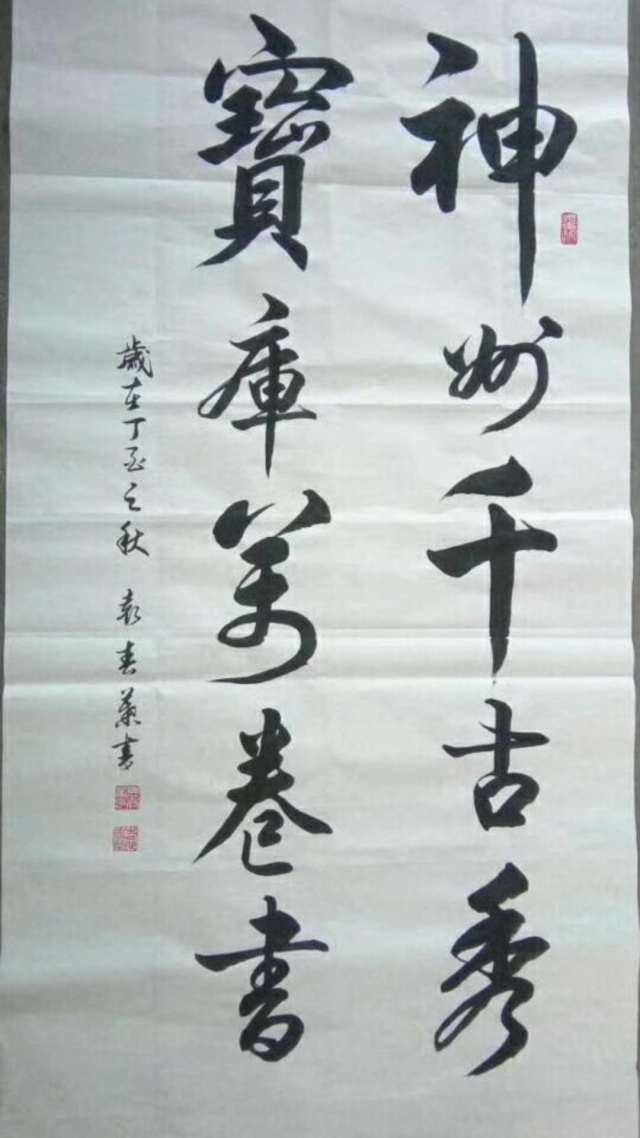 神州千古秀
寶庫萬卷書
歲在丁酉之秋 袁春蘭書